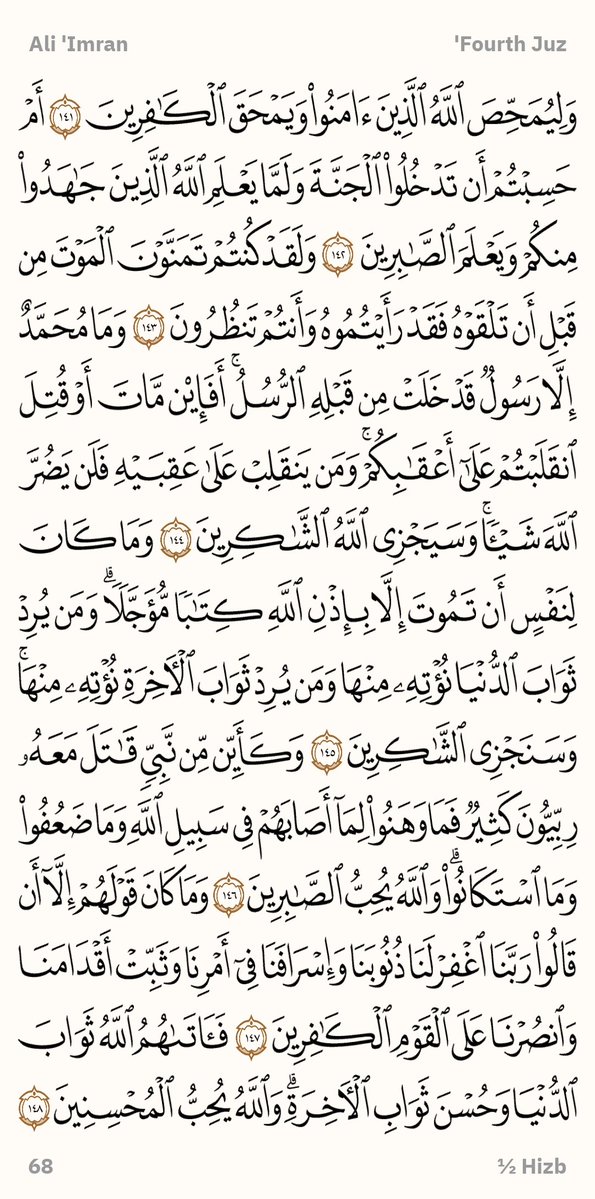 Ali 'Imran
'Fourth Juz
وَلِيُمَحِّصَ ٱللَّهُ ٱلَّذِينَ ءَامَنُوا۟ وَيَمْحَقَ ٱلْكَـٰفِرِينَ ١٤١ أَمْ
حَسِبْتُمْ أَن تَدْخُلُوا۟ ٱلْجَنَّةَ وَلَمَّا يَعْلَمِ ٱللَّهُ ٱلَّذِينَ جَـٰهَدُوا۟
مِنكُمْ وَيَعْلَمَ ٱلصَّـٰبِرِينَ ١٤٢ وَلَقَدْ كُنتُمْ تَمَنَّوْنَ ٱلْمَوْتَ مِن
قَبْلِ أَن تَلْقَوْهُ فَقَدْ رَأَيْتُمُوهُ وَأَنتُمْ تَنظُرُونَ ١٤٣ وَمَا مُحَمَّدٌ
إِلَّا رَسُولٌ قَدْ خَلَتْ مِن قَبْلِهِ ٱلرُّسُلُ ۚ أَفَإِي۟ن مَّاتَ أَوْ قُتِلَ
ٱنقَلَبْتُمْ عَلَىٰٓ أَعْقَـٰبِكُمْ ۚ وَمَن يَنقَلِبْ عَلَىٰ عَقِبَيْهِ فَلَن يَضُرَّ
ٱللَّهَ شَيْـًٔا ۗ وَسَيَجْزِى ٱللَّهُ ٱلشَّـٰكِرِينَ ١٤٤ وَمَا كَانَ
لِنَفْسٍ أَن تَمُوتَ إِلَّا بِإِذْنِ ٱللَّهِ كِتَـٰبًا مُّؤَجَّلًا ۗ وَمَن يُرِدْ
ثَوَابَ ٱلدُّنْيَا نُؤْتِهِۦ مِنْهَا وَمَن يُرِدْ ثَوَابَ ٱلْـَٔاخِرَةِ نُؤْتِهِۦ مِنْهَا ۚ
وَسَنَجْزِى ٱلشَّـٰكِرِينَ ١٤٥ وَكَأَيِّن مِّن نَّبِىٍّ قَـٰتَلَ مَعَهُۥ
رِبِّيُّونَ كَثِيرٌ فَمَا وَهَنُوا۟ لِمَآ أَصَابَهُمْ فِى سَبِيلِ ٱللَّهِ وَمَا ضَعُفُوا۟
وَمَا ٱسْتَكَانُوا۟ ۗ وَٱللَّهُ يُحِبُّ ٱلصَّـٰبِرِينَ ١٤٦ وَمَا كَانَ قَوْلَهُمْ إِلَّآ أَن
قَالُوا۟ رَبَّنَا ٱغْفِرْ لَنَا ذُنُوبَنَا وَإِسْرَافَنَا فِىٓ أَمْرِنَا وَثَبِّتْ أَقْدَامَنَا
وَٱنصُرْنَا عَلَى ٱلْقَوْمِ ٱلْكَـٰفِرِينَ ١٤٧ فَـَٔاتَىٰهُمُ ٱللَّهُ ثَوَابَ
ٱلدُّنْيَا وَحُسْنَ ثَوَابِ ٱلْـَٔاخِرَةِ ۗ وَٱللَّهُ يُحِبُّ ٱلْمُحْسِنِينَ ١٤٨
68
½ Hizb